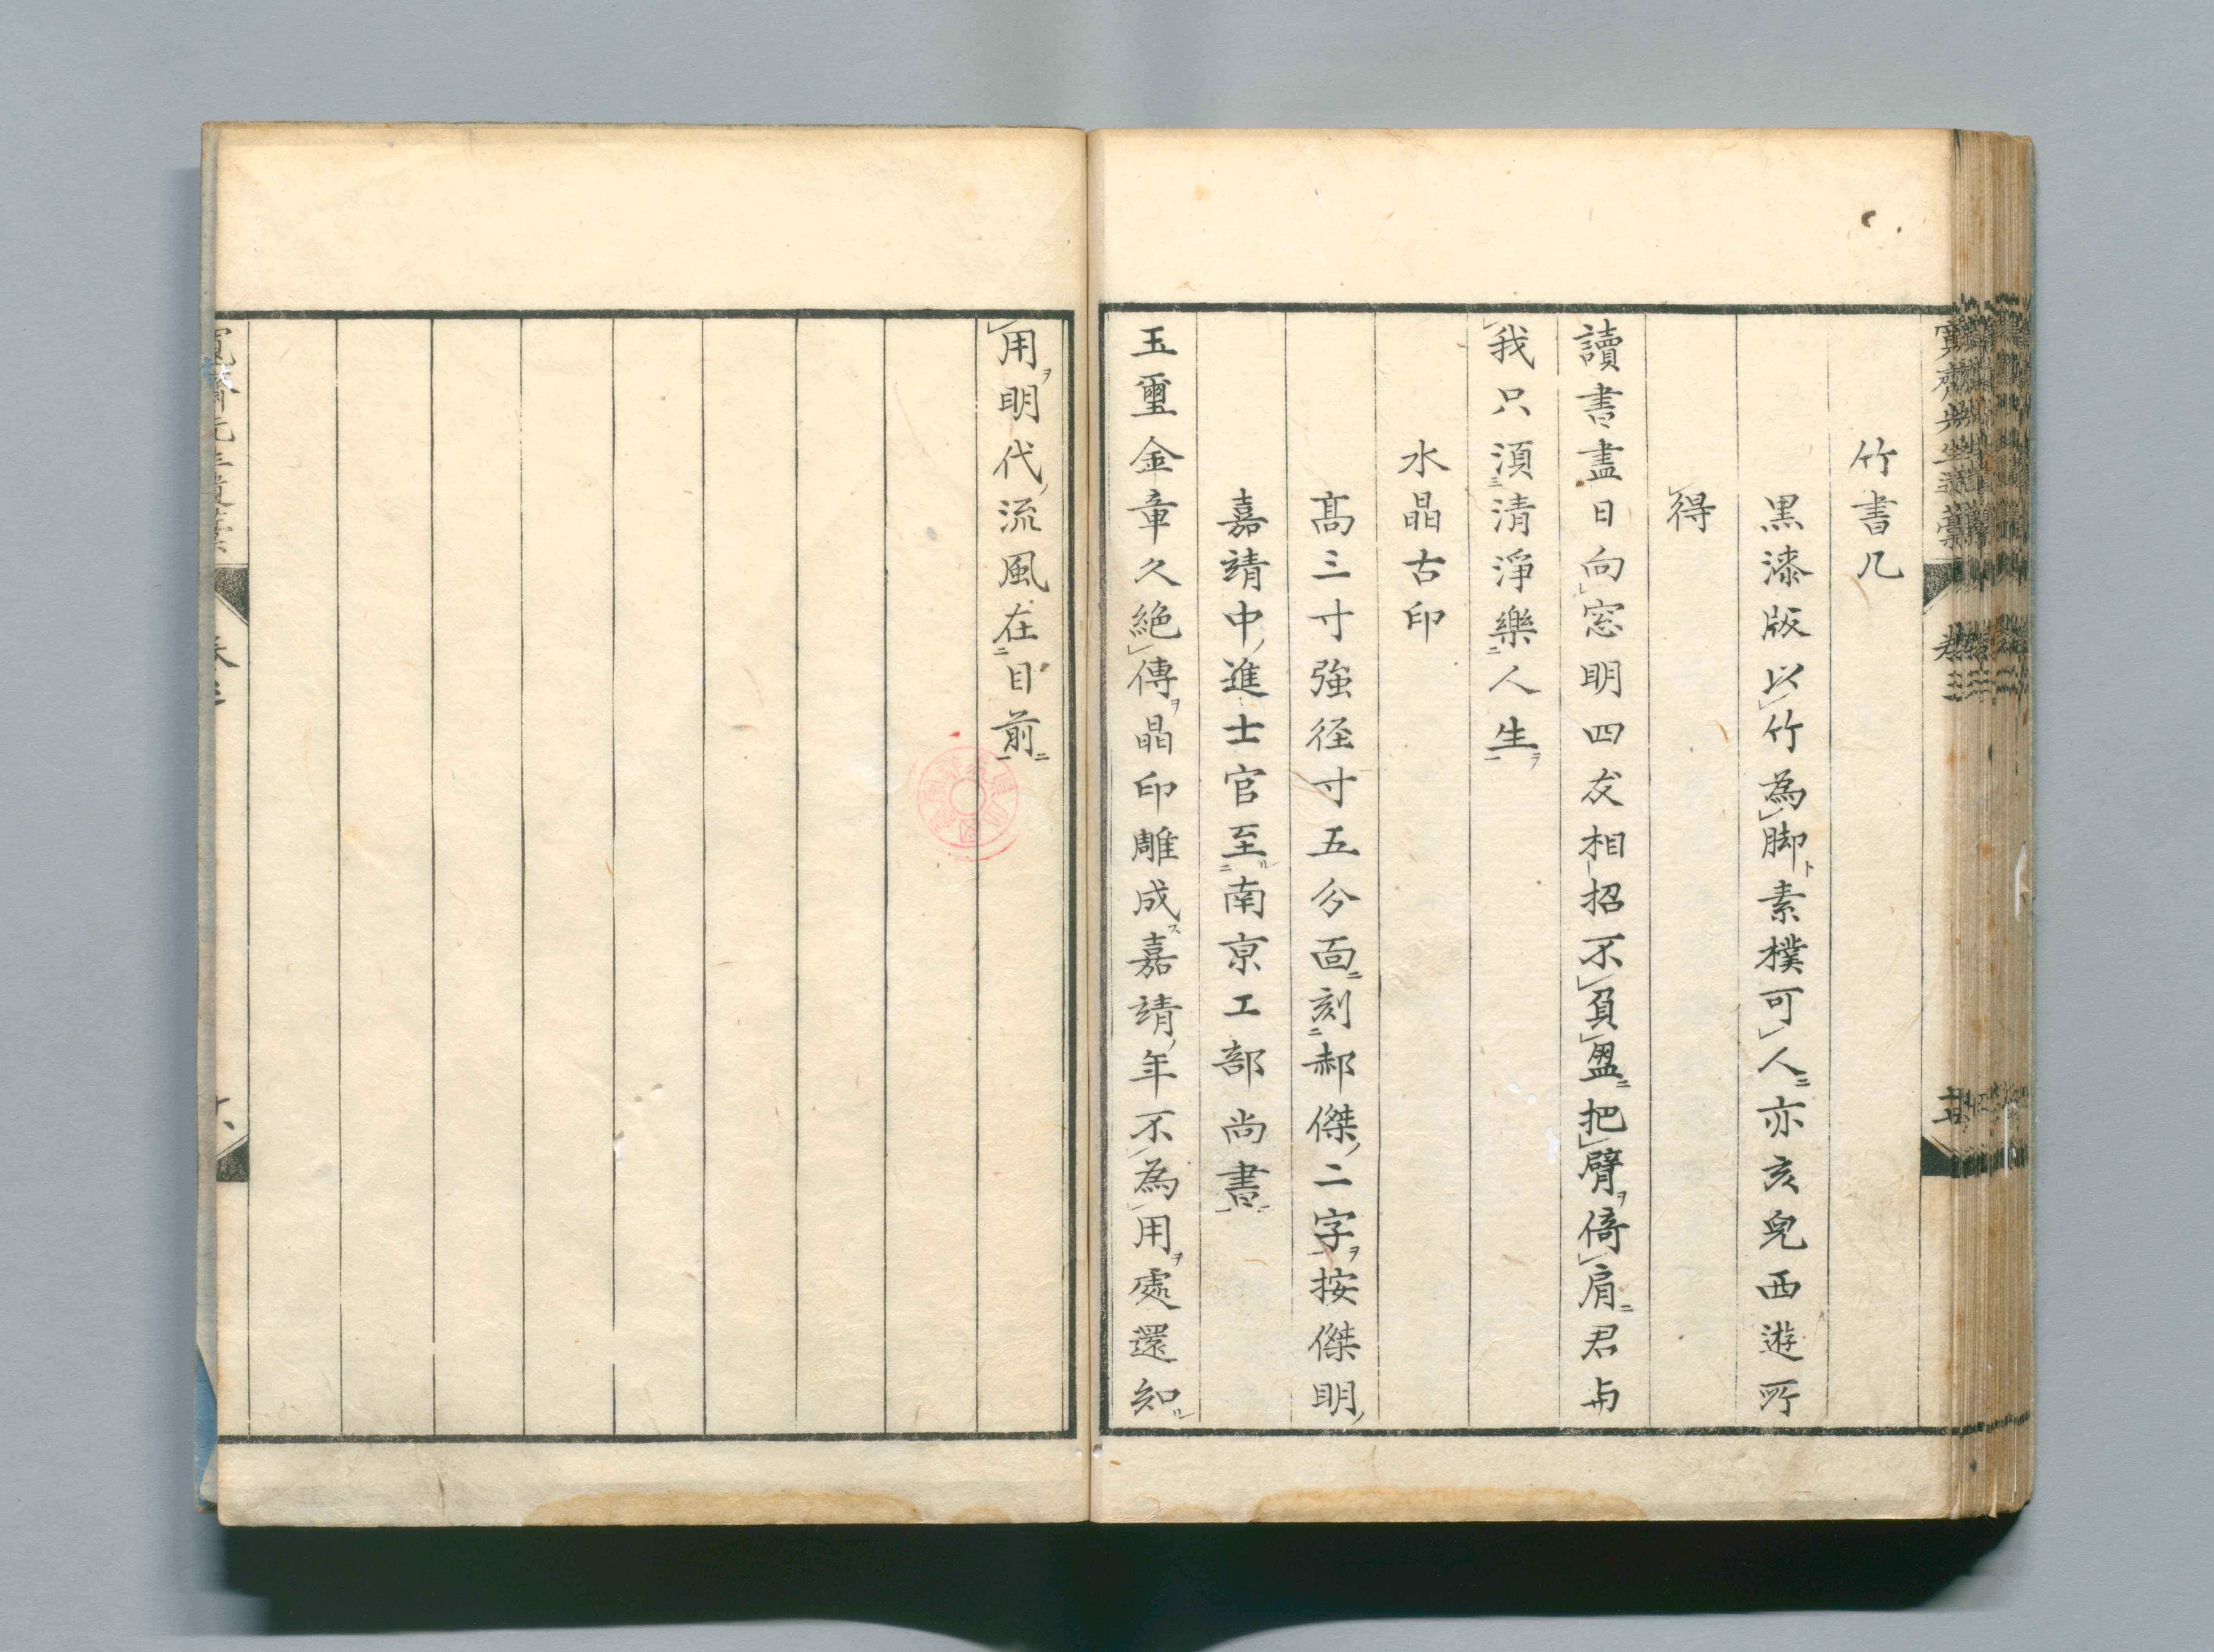 竹書几
黒漆版以竹為脚素樸可人亦亥兒西遊所
得
讀書盡日向窓明四友相招不負盟把臂倚肩君与
我只須清淨樂人生
水晶古印
高三寸強径寸五分面刻郝傑二字按傑明
嘉靖中進士官至南京工部尚書
玉璽金章久絶傳晶印雕成嘉靖年不為用處還知
用明代流風在目前